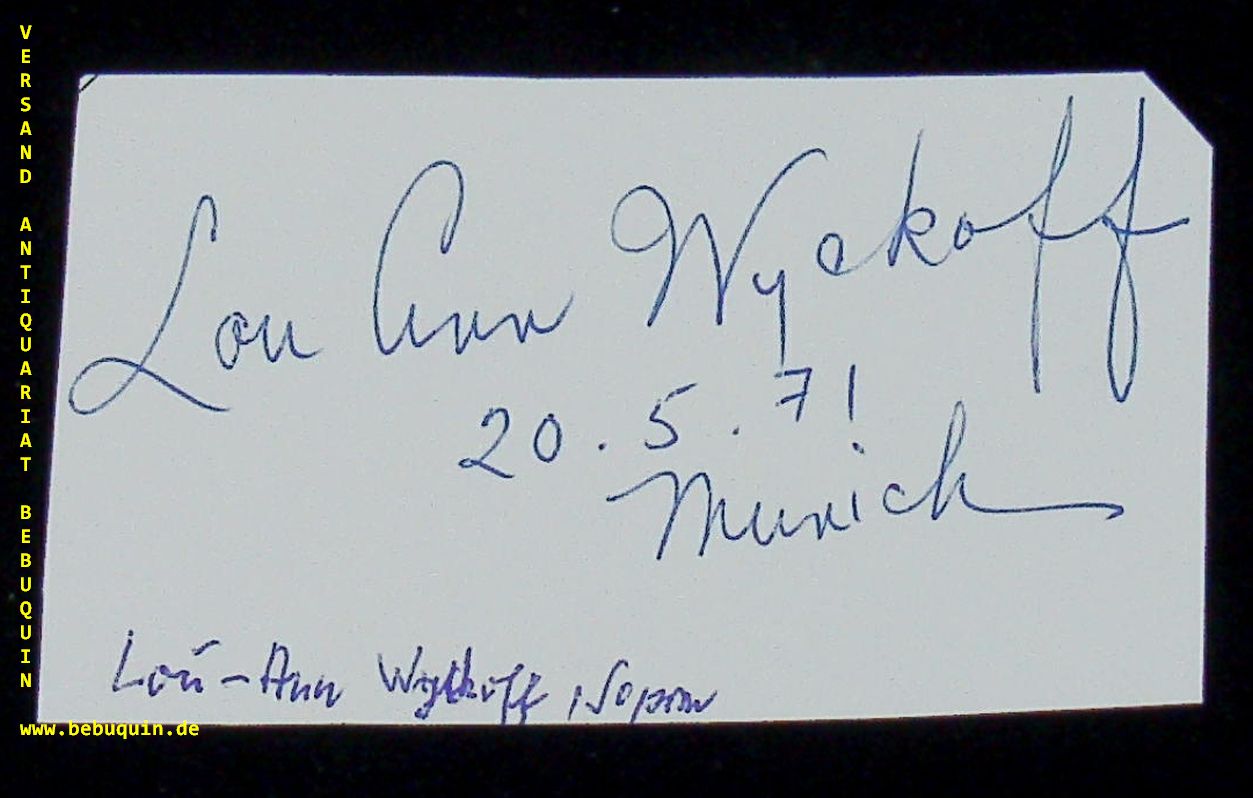 VERSAND ANTIQUARIAT BEBUQUIN
Lou Ann Wyckoff
20.5.71
Munich
Lou-Ann Wyckoff, Sopran
www.bebuquin.de